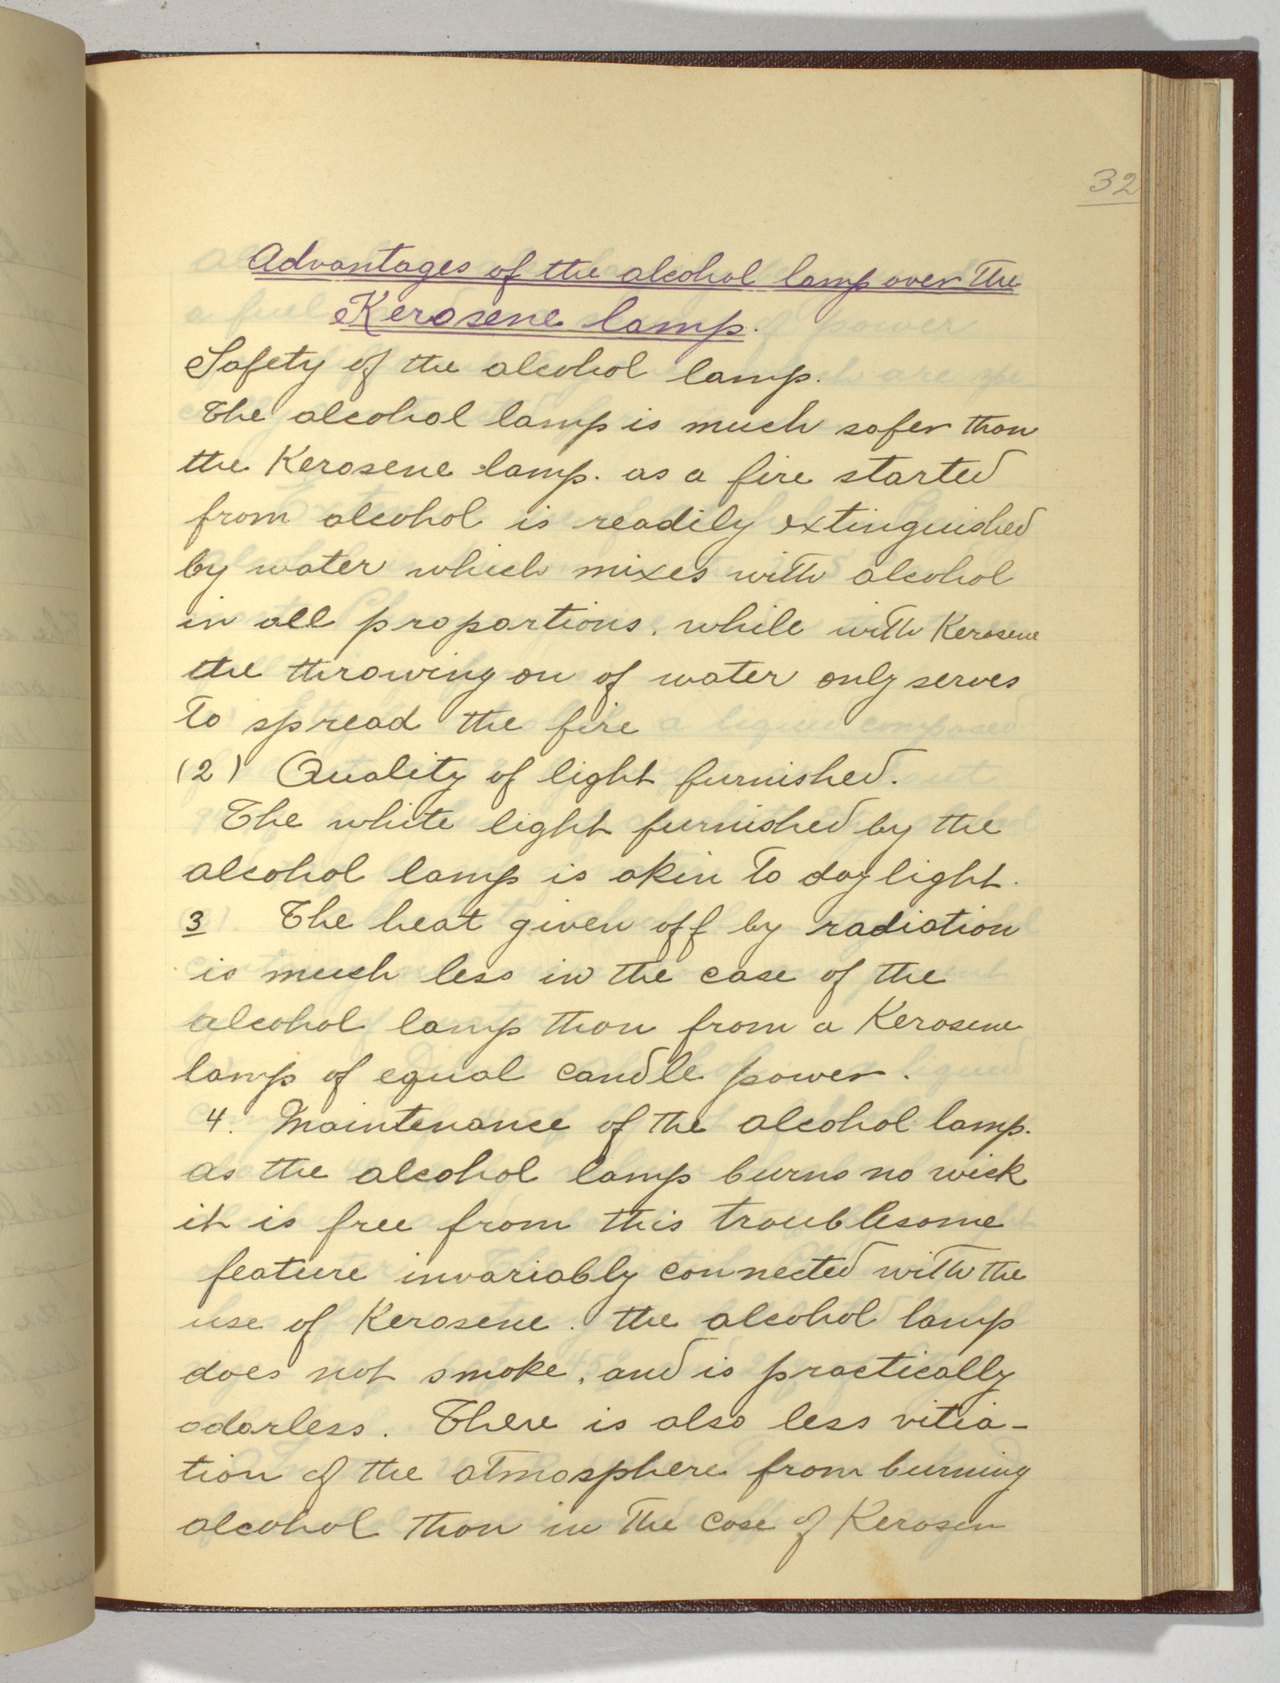 32
Advantages of the alcohol lamp over the
Kerosene lamp.
Safety of the alcohol lamp.
The alcohol lamp is much safer than
the Kerosene lamp. as a fire started
from alcohol is readily extinguished
by water which mixes with alcohol
in all proportions, while with Kerosene
the throwing on of water only serves
to spread the fire
(2) Quality of light furnished.
The white light furnished by the
alcohol lamp is akin to daylight.
3 The heat given off by radiation
is much less in the case of the
alcohol lamp than from a Kerosene
lamp of equal candle power.
4. Maintenance of the alcohol lamp.
as the alcohol lamp burns no wick
it is free from this troublesome
feature invariably connected with the
use of Kerosene. the alcohol lamp
does not smoke, and is practically
odorless. There is also less vitia-
tion of the atmosphere from burning
alcohol than in the case of Kerosen